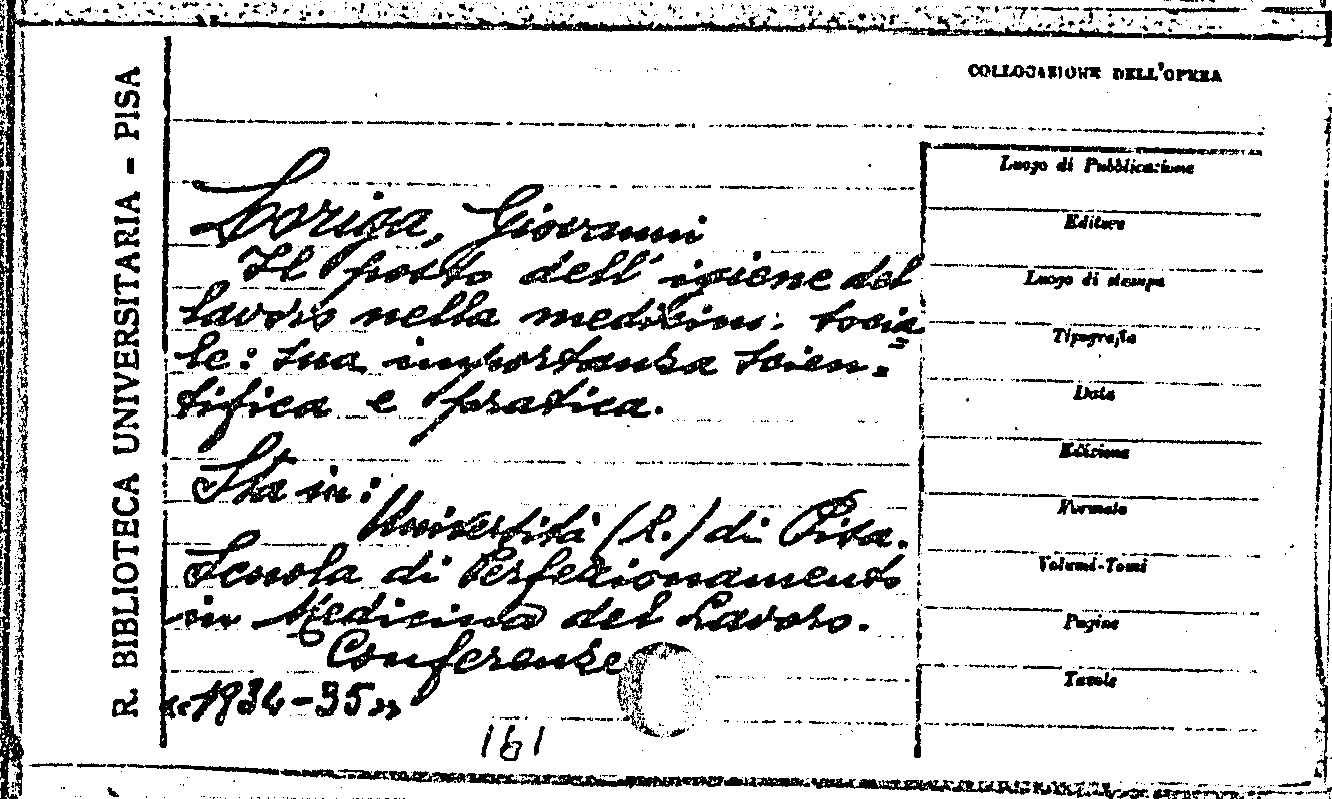 R. BIBLIOTECA UNIVERSITARIA - PISA
COLLOCAZIONE DELL'OPERA
Loriga, Giovanni
Il posto dell'igiene del
lavoro nella medicina socia=
le: sua importanza scien=
tifica e pratica.
Sta in:
Università (R.) di Pisa.
Scuola di Perfezionamento
in Medicina del Lavoro.
Conferenze
«1934-35»
161
Luogo di Pubblicazione
Editore
Luogo di stampa
Tipografia
Data
Edizione
Formato
Volumi-Tomi
Pagine
Tavole